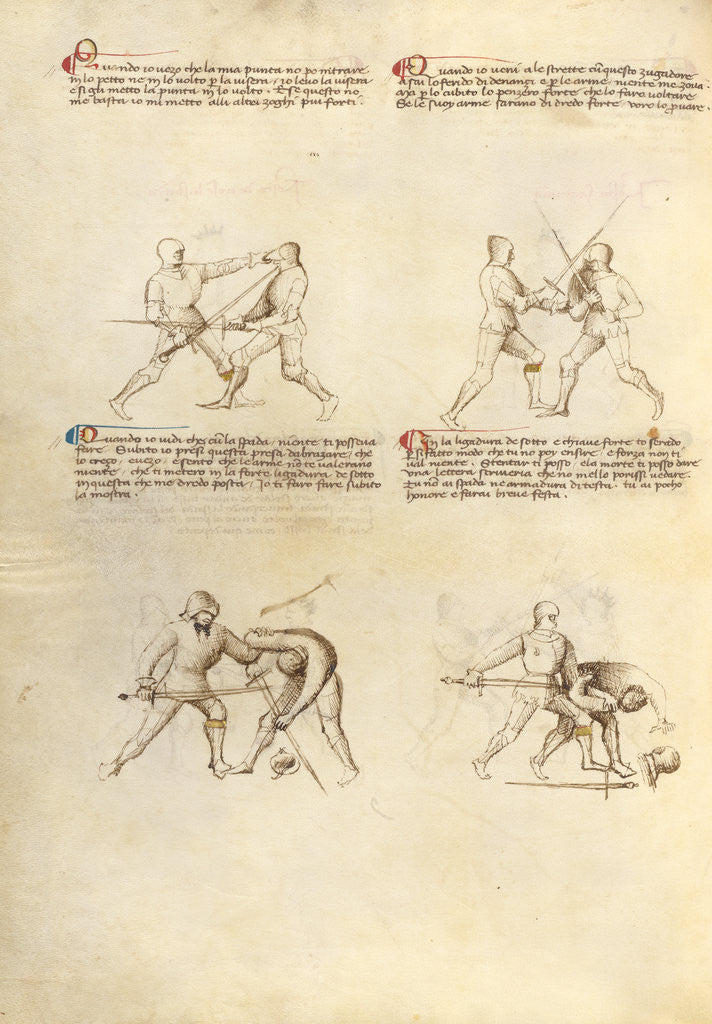 Quando io vezo che la mia punta no po intrare
in lo petto ne in lo volto p la visera / io levo la visera
e si gli metto la punta in lo volto. E se questo no
me basta io mi metto alli altri zoghi piu forti.
Quando io veni a le strette cu questo zugadore
lo ferido di denançi e p le arme niente me zova.
p lo cubito lo penzero forte che lo faro voltare
Se le suoy arme sarano di dredo forte voro lo pvare.
Quando io vidi che cu la spada / niente ti posseva
fare. Subito io presi questa presa dabrazare / che
io creço / e vezo / e sento che le arme no te valerano
niente / che ti metero in la forte ligadura de sotto
in questa che me dredo posta / Io ti faro fare subito
la mostra.
In la ligadura de sotto e chiave forte to serado
p si fatto modo che tu no poy ensire / e forza non ti
val niente. Stentar ti posso / e la morte ti posso dare
una lettera scriveria che no mello porissi vedare.
Tu no ai spada ne armadura di testa. tu ai pocho
honore e farai breve festa.